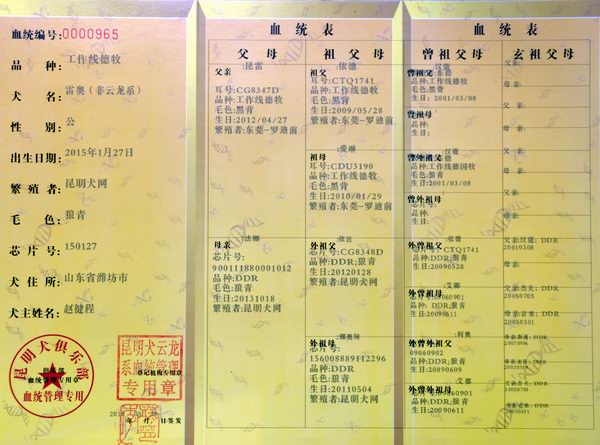 血统编号:0000965
品种:工作线德牧
犬名:雷奥(非云龙系)
性别:公
出生日期:2015年1月27日
繁殖者:昆明犬网
毛色:狼青
芯片号:150127
犬住所:山东省潍坊市
犬主姓名:赵健程
昆明犬俱乐部
俱乐部
血统管理专用章
血统管理专用
昆明犬云龙
系血统管理
登记机构专用章
专用章
年 月 日签发
血统表
父母
祖父母
父亲:昆雷
耳号:CG8347D
品种:工作线德牧
毛色:黑背
生日:2012/04/27
繁殖者:东莞-罗迪前
母亲:法娜
芯片号:
900111880001012
品种:DDR
毛色:狼青
生日:20131018
繁殖者:昆明犬网
祖父:依德
耳号:CTQ1741
品种:工作线德牧
毛色:黑背
生日:2009/05/28
繁殖者:东莞-罗迪前
祖母:爱琳
耳号:CDU3190
品种:工作线德牧
毛色:黑背
生日:2010/01/29
繁殖者:东莞-罗迪前
外祖父:依兹
芯片号:CG8348D
品种:DDR;狼青
生日:20120128
繁殖者:昆明犬网
外祖母:娜奥辣
芯片号:
156008889112296
品种:DDR;狼青
生日:20110504
繁殖者:昆明犬网
血统表
曾祖父母
玄祖父母
曾祖父:汉蔻
品种:工作线德牧
毛色:黑背
生日:2001/03/08
曾祖母
品种:
生日:
曾外祖父:汉蔻
品种:工作线德国牧
毛色:黑背
生日:2001/03/08
曾外祖母
芯片号:
品种:
生日:
外曾祖父:依德
芯片号:CTQ1741
品种:DDR;狼青
生日:20090528
外曾祖母:艾娜
芯片号:09060901
品种:DDR;狼青
生日:20090611
外曾外祖父:利奥
09060902
品种:DDR;狼青
生日:20090609
外曾外祖母:艾娜
品种:DDR;狼青
生日:20090611
父亲:
母亲:
父亲:
母亲:
父亲:
母亲:
父亲:
母亲:
父亲:汉蔻; DDR
20010308
母亲:
父亲:杰夫; DDR
20050705
母亲:吉米; DDR
20050301